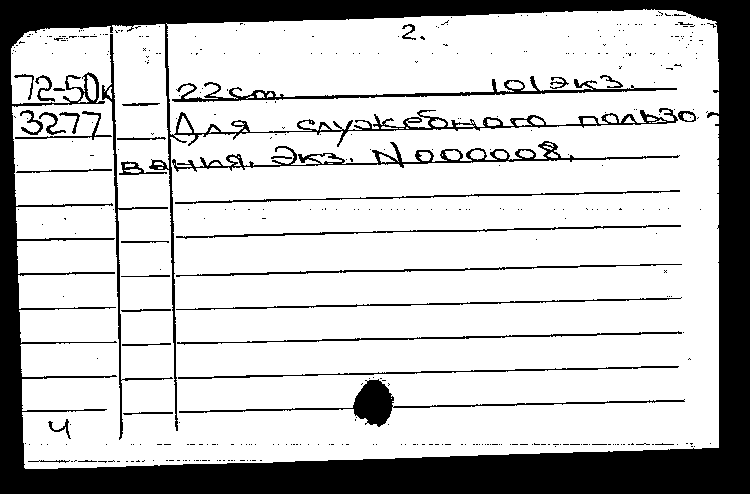 2.
72-50к 22 ст. 101 экз.
3277 Для служебного пользо-
вания. Экз. N000008.
ч